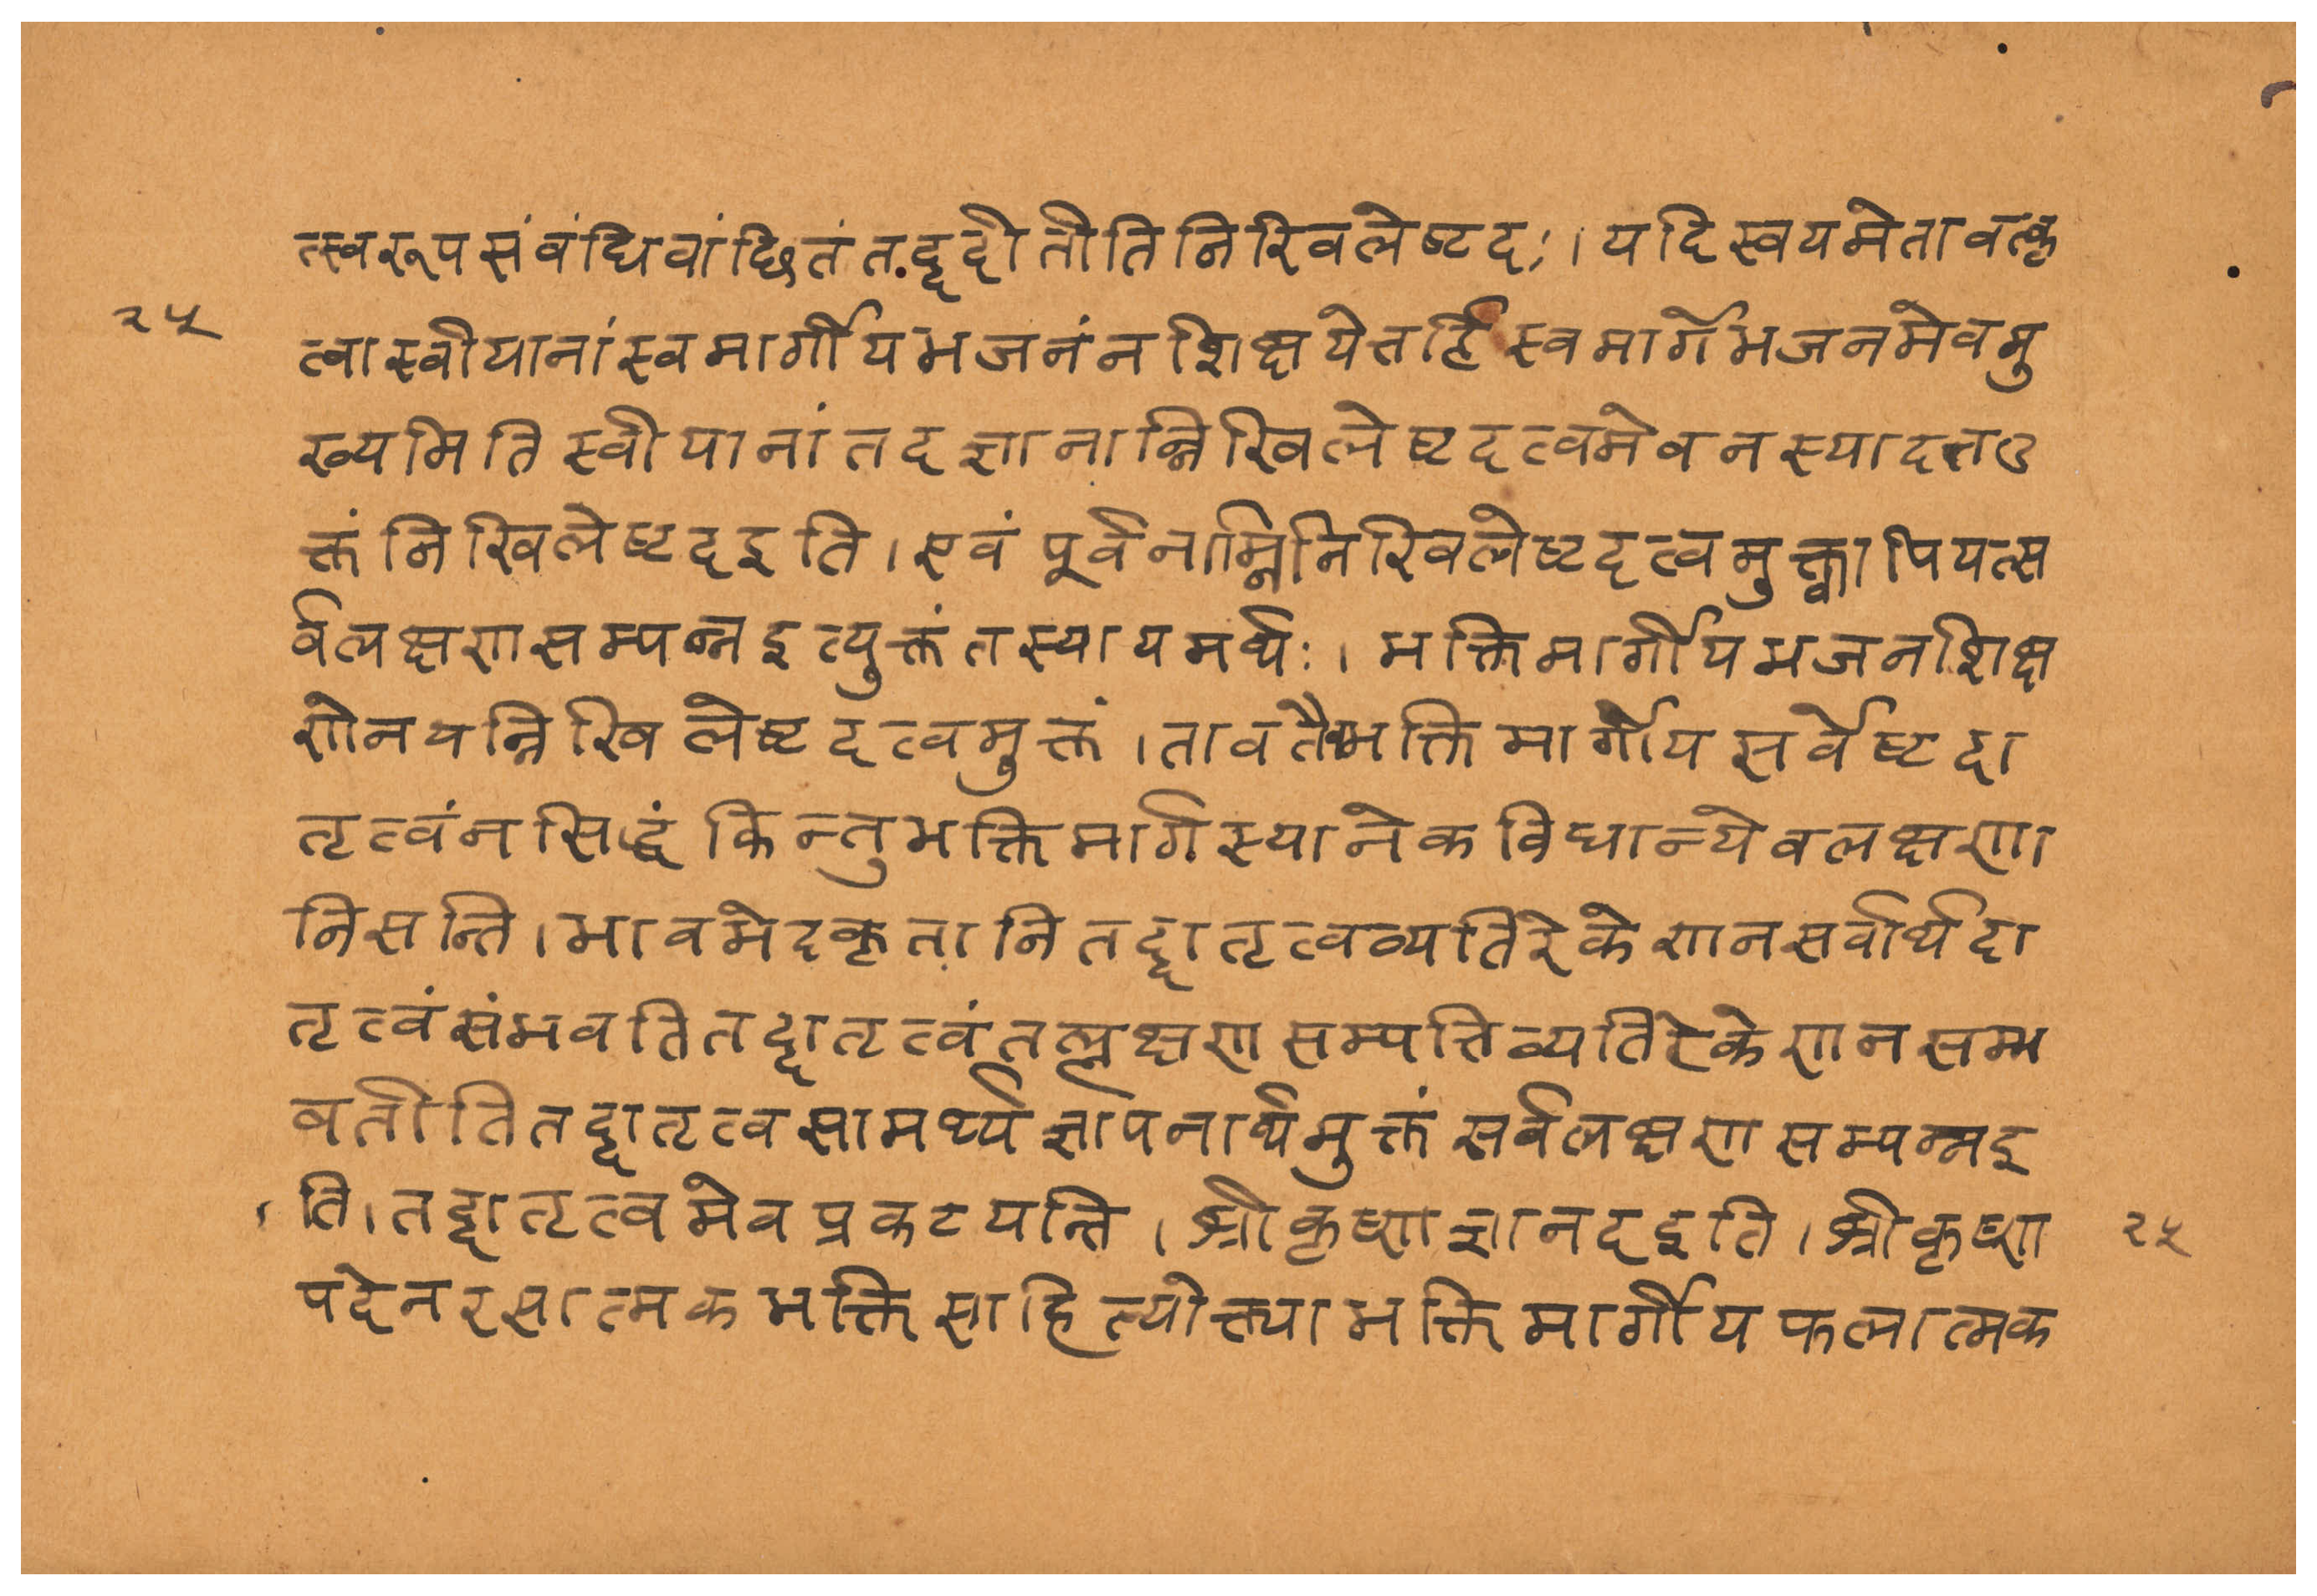 त्स्वरूपसंवंधिवांछितंत.द्ददातीतिनिखिलेष्टदः।यदिस्वयमेतावत्कृ
२५
त्वास्वीयानांस्वमार्गीयभजनंनशिक्षयेत्तर्हिस्वमार्गेभजनमेवमु
ख्यमितिस्वीयानांतदज्ञानान्निखिलेष्टदत्वमेवनस्यादतउ
क्तंनिखिलेष्टदइति।एवंपूर्वनाम्निनिखिलेष्टदत्वमुक्त्वापियत्स
र्वलक्षणसम्पन्नइत्युक्तंतस्यायमर्थः।भक्तिमार्गीयभजनशिक्ष
णेनयन्निखिलेष्टदत्वमुक्तं।तावतैवभक्तिमार्गीयसर्वेष्टदा
तृत्वंनसिद्धंकिन्तुभक्तिमार्गस्यानेकविधान्येवलक्षणा
निसन्ति।भावभेदकृतानितद्दातृत्वव्यतिरेकेणनसर्वार्थदा
तृत्वंसंभवतितद्दातृत्वंतल्लक्षणसम्पत्तिव्यतिरेकेणनसम्भ
वतीतितद्दातृत्वसामर्थ्यज्ञापनार्थमुक्तंसर्वलक्षणसम्पन्नइ
ति।तद्दातृत्वमेवप्रकटयन्ति।श्रीकृष्णज्ञानदइति।श्रीकृष्ण
२५
पदेनरसात्मकभक्तिसाहित्योक्त्याभक्तिमार्गीयफलात्मक